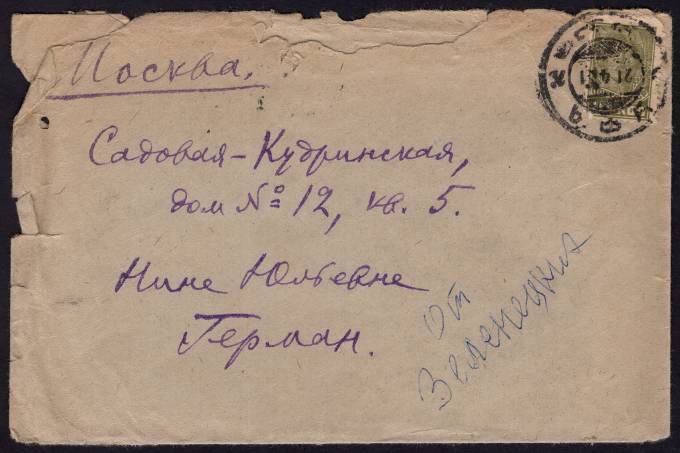 Москва.
Садовая-Кудринская,
дом № 12, кв. 5.
Нине Юльевне
Герман.
От
Зеленецких
УФА
21 4